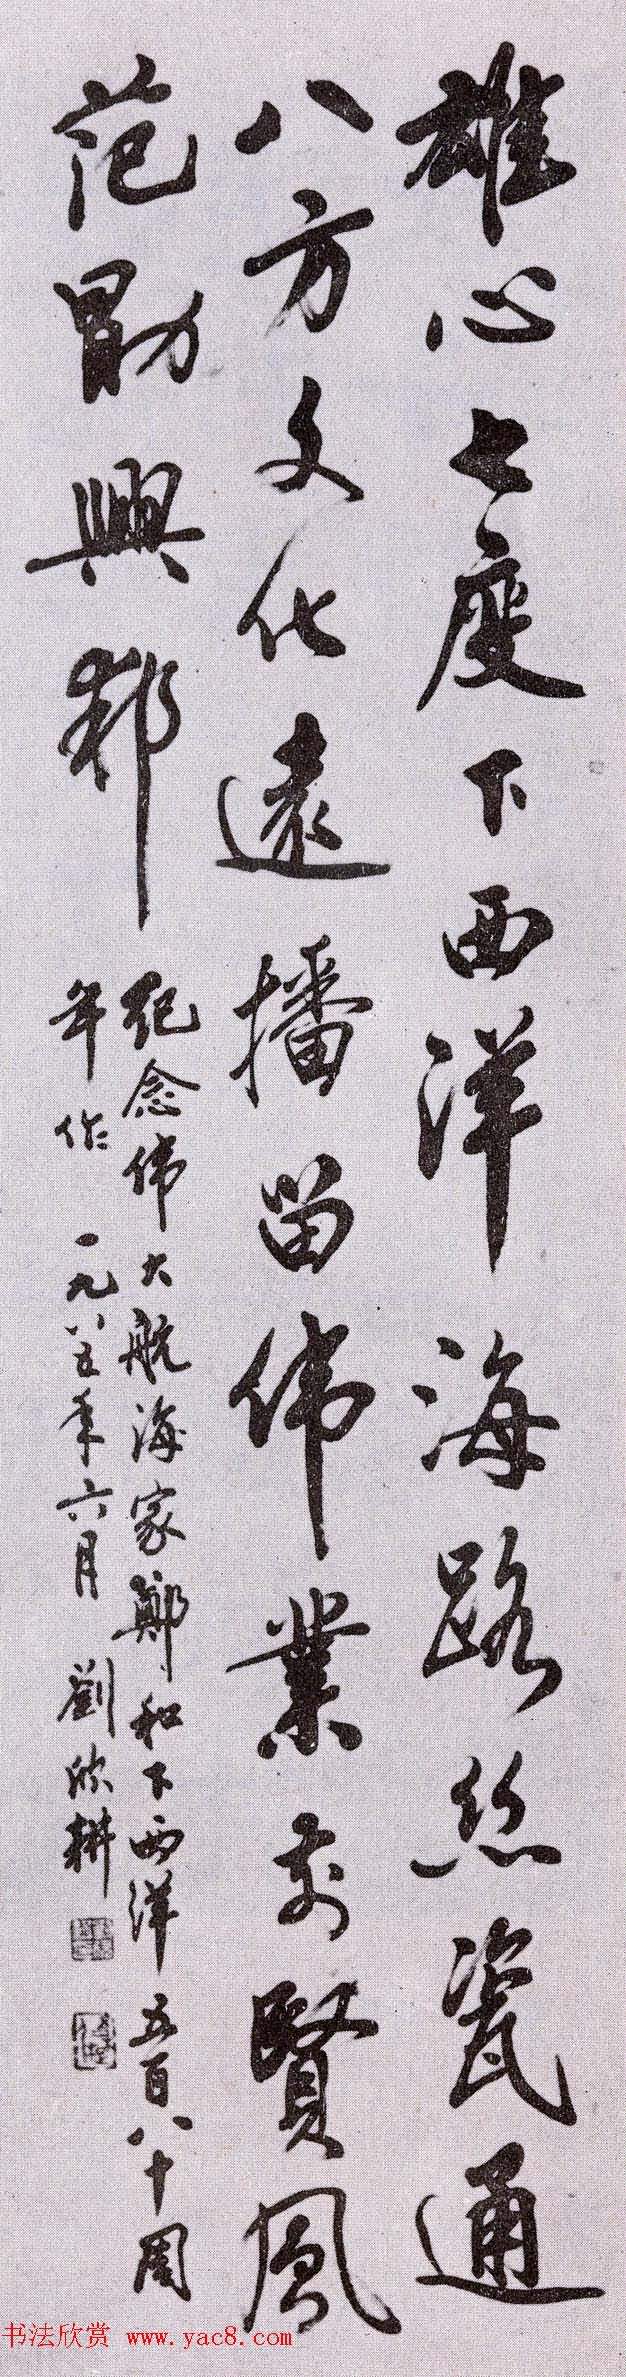 雄心七度下西洋海路丝瓷通
八方文化远播留伟業前賢風
范勛興邦
纪念伟大航海家鄭和下西洋五百八十周
年作 一九八五年六月 劉欣耕
书法欣赏 www.yac8.com